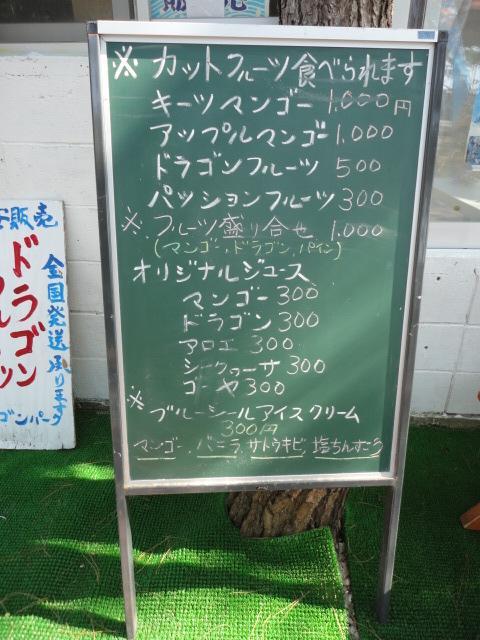 ※ カットフルーツ食べられます
キーツマンゴー 1.000円
アップルマンゴー 1.000
ドラゴンフルーツ 500
パッションフルーツ 300
※ フルーツ盛り合せ 1.000
(マンゴー、ドラゴン、パイン)
オリジナルジュース
マンゴー 300
ドラゴン 300
アロエ 300
シークヮーサ 300
ゴーヤ 300
※ ブルーシールアイスクリーム
300円
マンゴー、バニラ、サトウキビ、塩ちんすこう
販売
ドラゴン
全国発送承ります
ゴンパーク